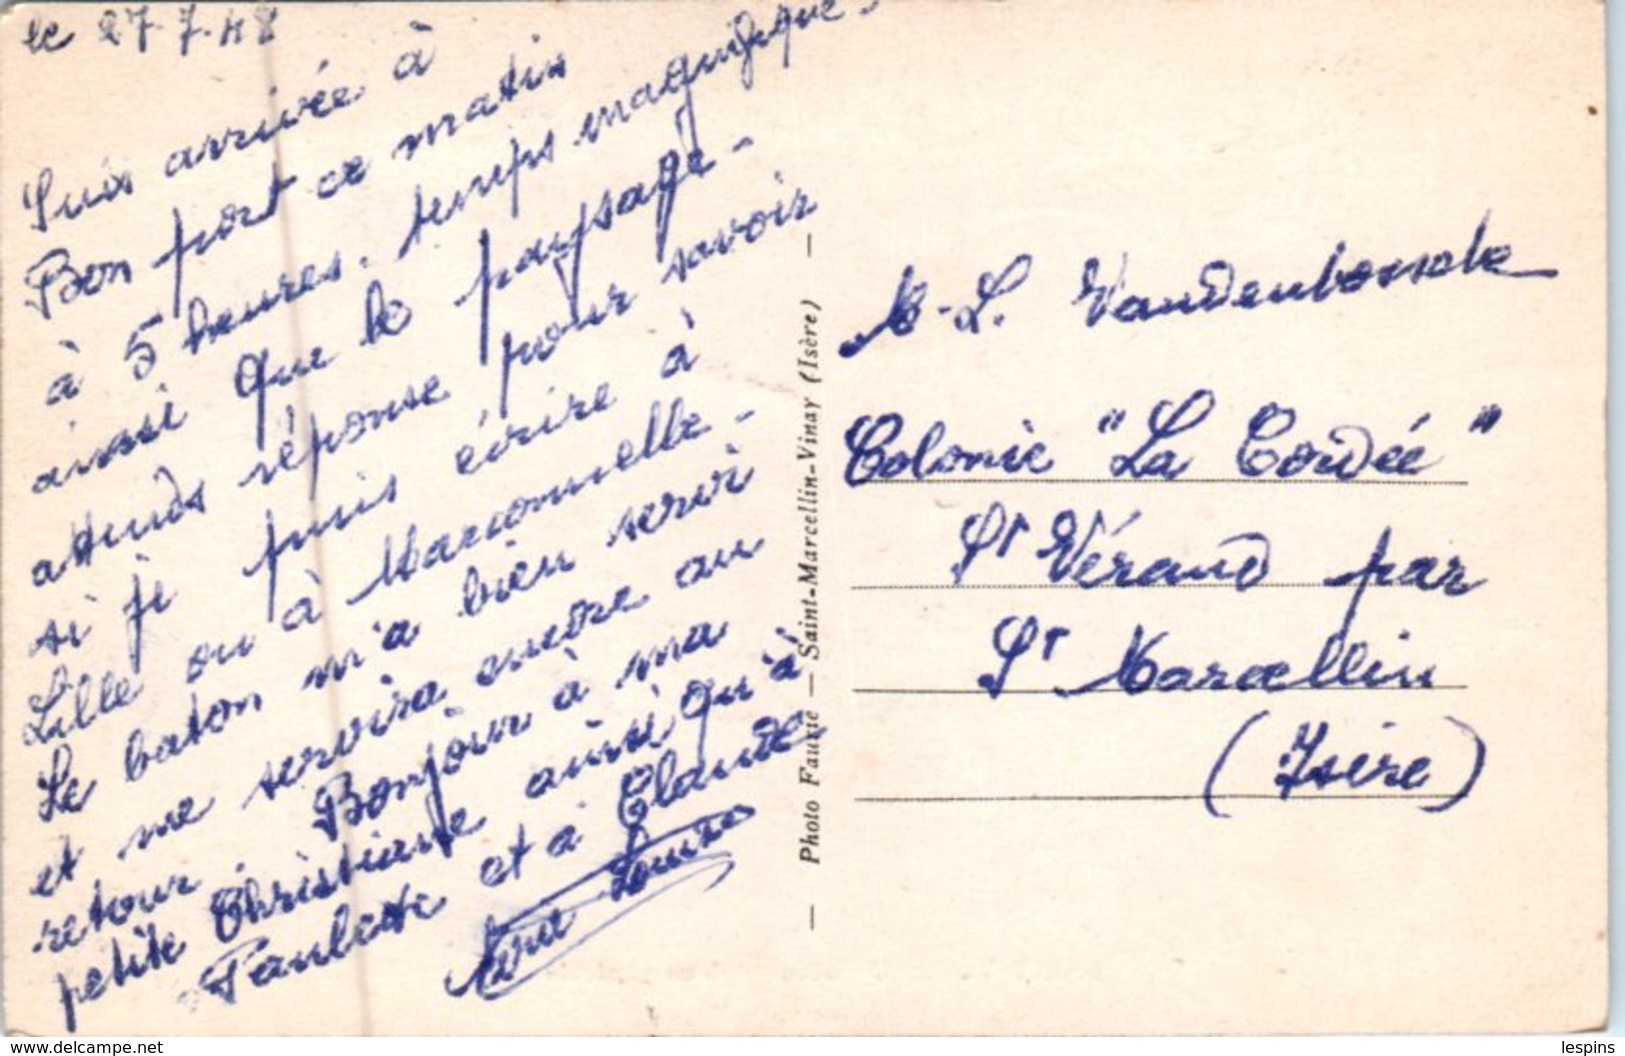 le 27.7.48
Suis arrivée à
Bon port ce matin
à 5 heures. temps magnifique.
ainsi que le paysage-
attends réponse pour savoir
si je puis écrire à
Lille ou à Maronnelle-
Le baton m'a bien servi
et me servira encore au
retour. Bonjour à ma
petite Christiane ainsi qu'à
Paulette et à Claude.
Louise
Photo Faurie — Saint-Marcellin-Vinay (Isère)
M-L. Vandenbossche
Colonie "La Cordée"
St Vérand par
St Marcellin
(Isère)
www.delcampe.net
lespins